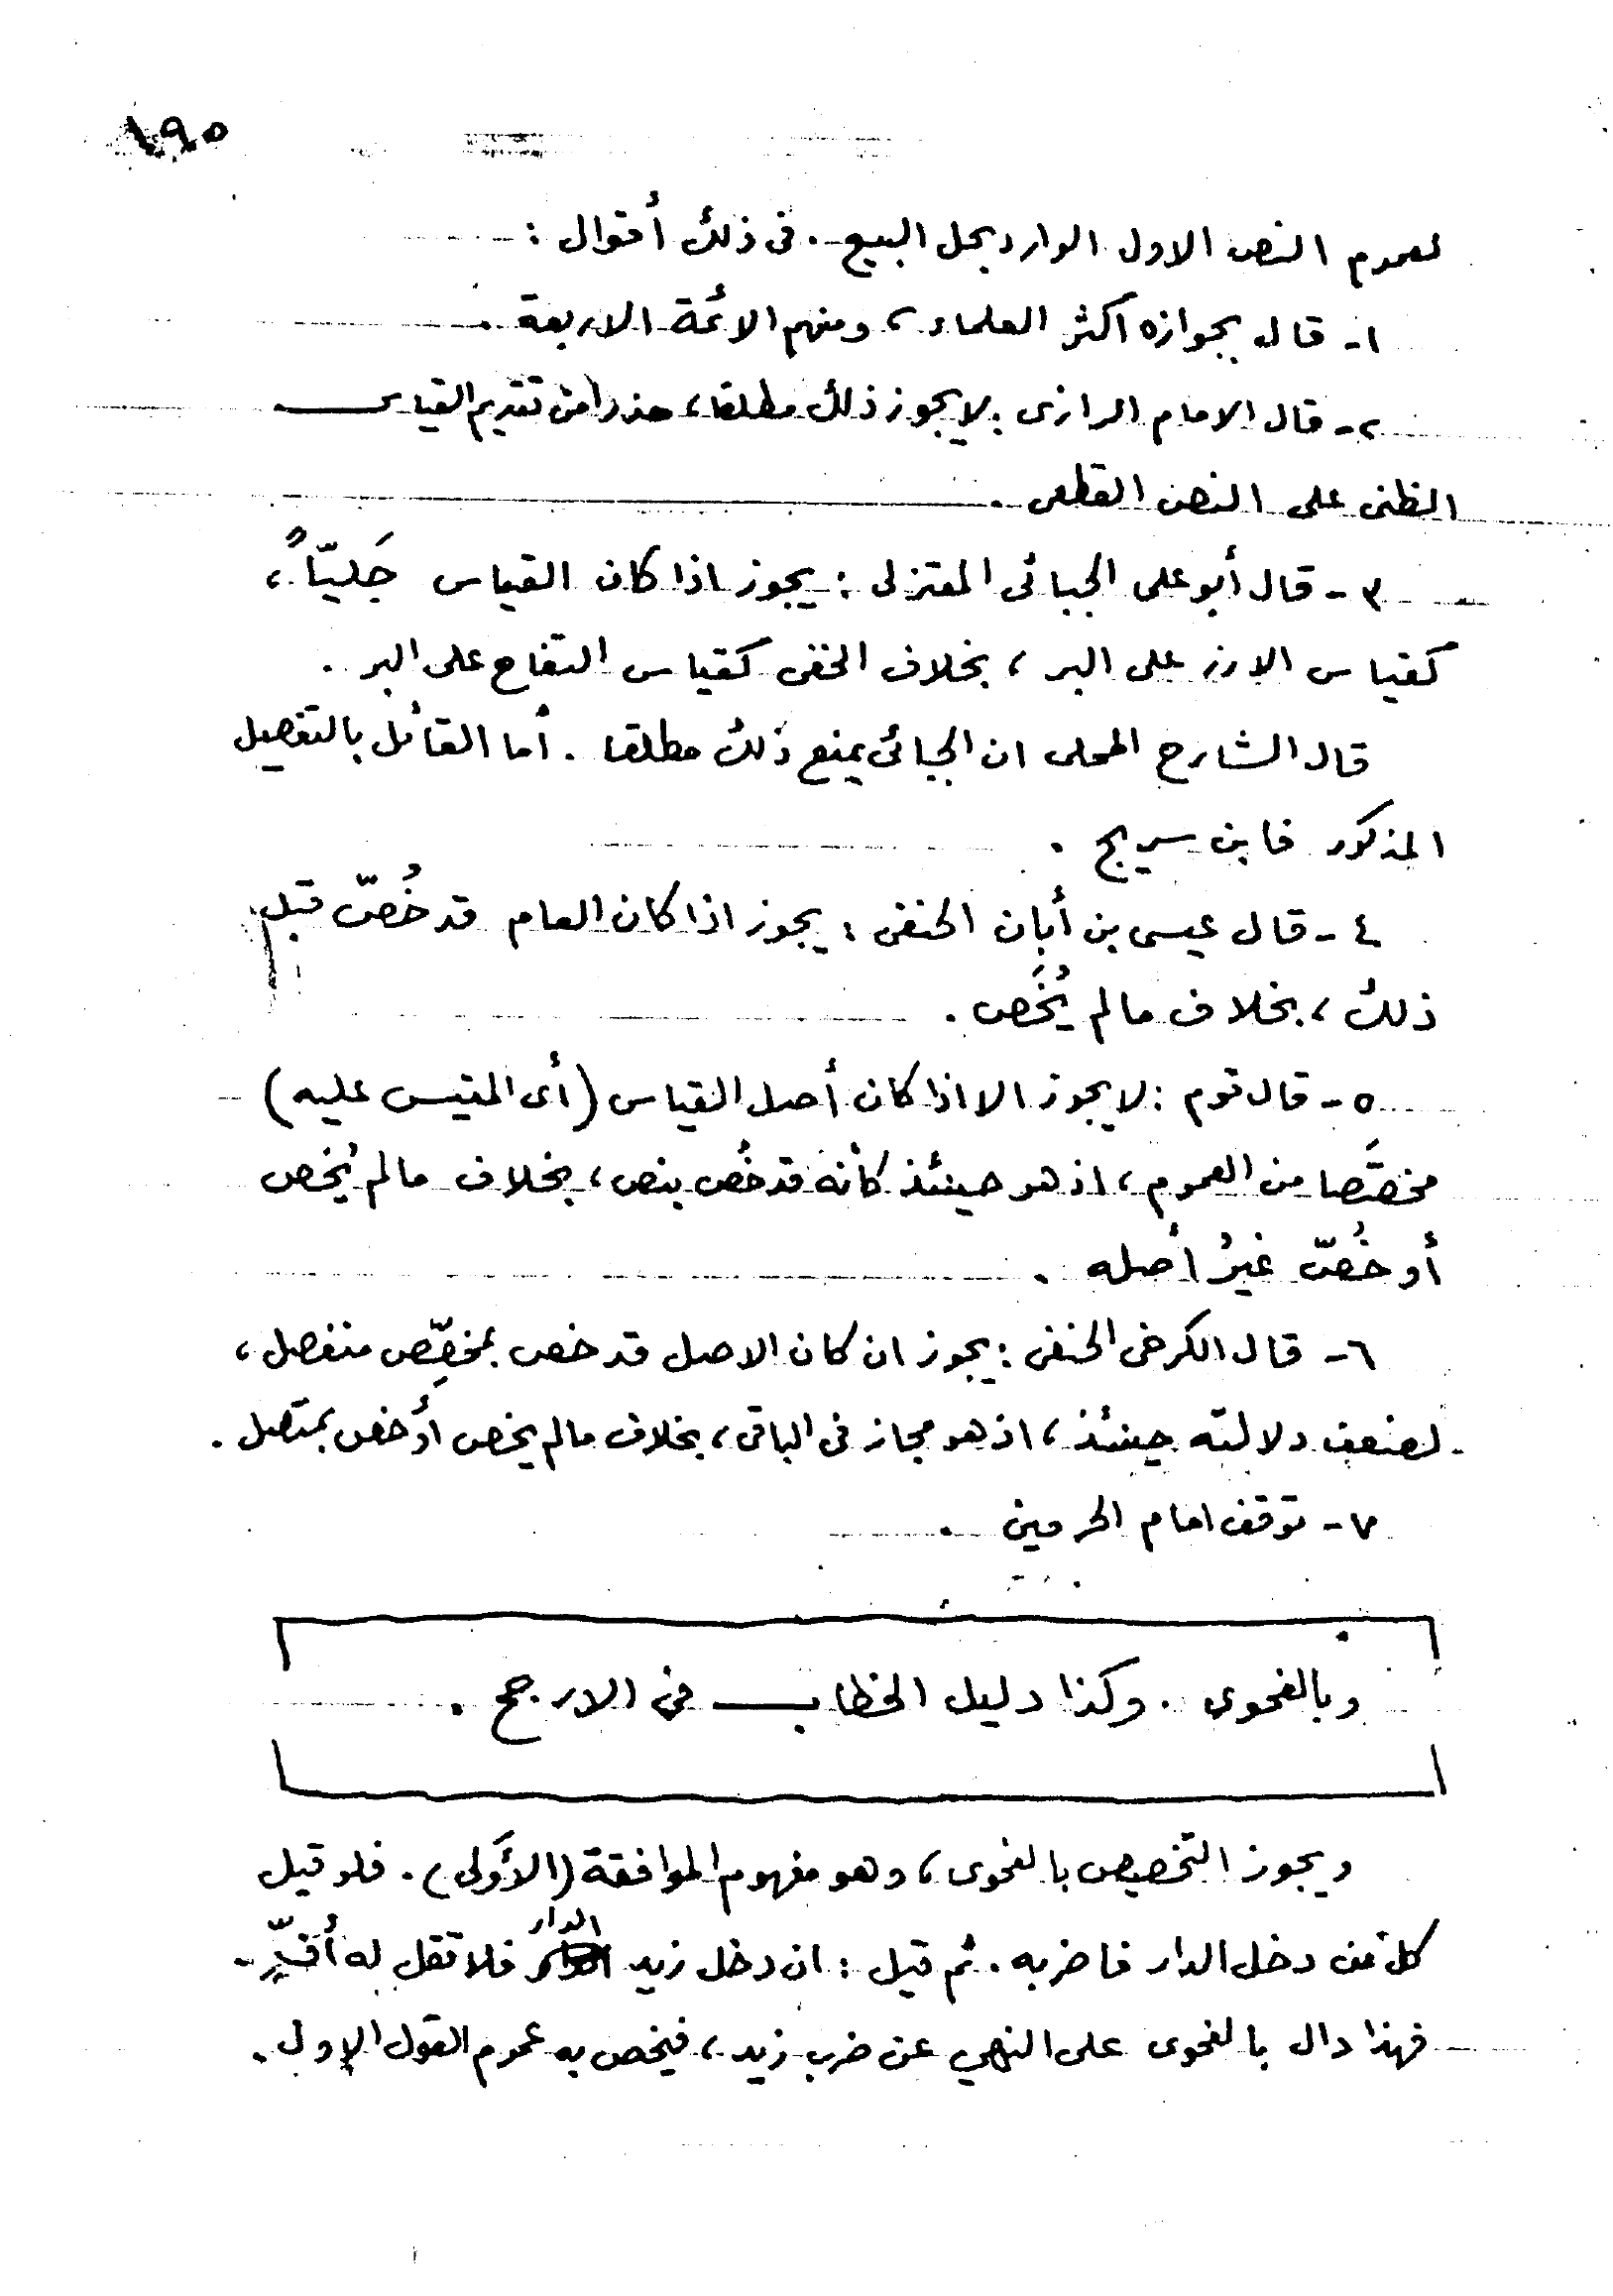 ١٩٥
لعموم النص الاول الوارد بحل البيع. فى ذلك أقوال :
١- قال بجوازه أكثر العلماء ، ومنهم الائمة الاربعة .
٢- قال الامام الرازى : لا يجوز ذلك مطلقا ، حذرا من تقديم القياس
الظنى على النص القطعى .
٣- قال أبو على الجبائى المعتزلى : يجوز اذا كان القياس جَليّاً ،
كقياس الارز على البر ، بخلاف الخفى كقياس التفاح على البر .
قال الشارح المحلى ان الجبائى يمنع ذلك مطلقا . أما القائل بالتفصيل
المذكور فابن سريج .
٤- قال عيسى بن أبان الحنفى : يجوز اذا كان العام قد خُصّ قبل
ذلك ، بخلاف مالم يُخَص .
٥- قال قوم : لا يجوز الا اذا كان أصل القياس (أى المقيس عليه)
مخصَّصا من العموم ، اذ هو حينئذ كأنه قد خُص بنص ، بخلاف مالم يُخص
أو خُصّ غيرُ أصله .
٦- قال الكرخى الحنفى : يجوز ان كان الاصل قد خص بمخصِّص منفصل ،
لضعف دلالته حينئذ ، اذ هو مجاز فى الباقى ، بخلاف مالم يخص أو خص بمتصل .
٧- توقف امام الحرمين .
وبالفحوى . وكذا دليل الخطاب فى الارجح .
ويجوز التخصيص بالفحوى ، وهو مفهوم الموافقة (الأَولى) . فلو قيل
كل من دخل الدار فاضربه . ثم قيل : ان دخل زيد الدار فلا تقل له أُفّ .
فهذا دال بالفحوى على النهي عن ضرب زيد ، فيخص به عموم القول الاول .